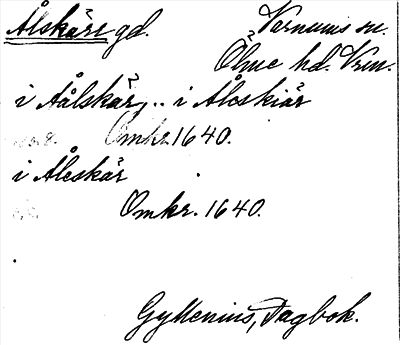 Ålskäre gd. Varnums sn.
Ölme hd. Vrm.
i Aålskär, .. i Åleskiär
Omkr. 1640.
i Åleskär
Omkr. 1640.
Gyllenius, Dagbok.